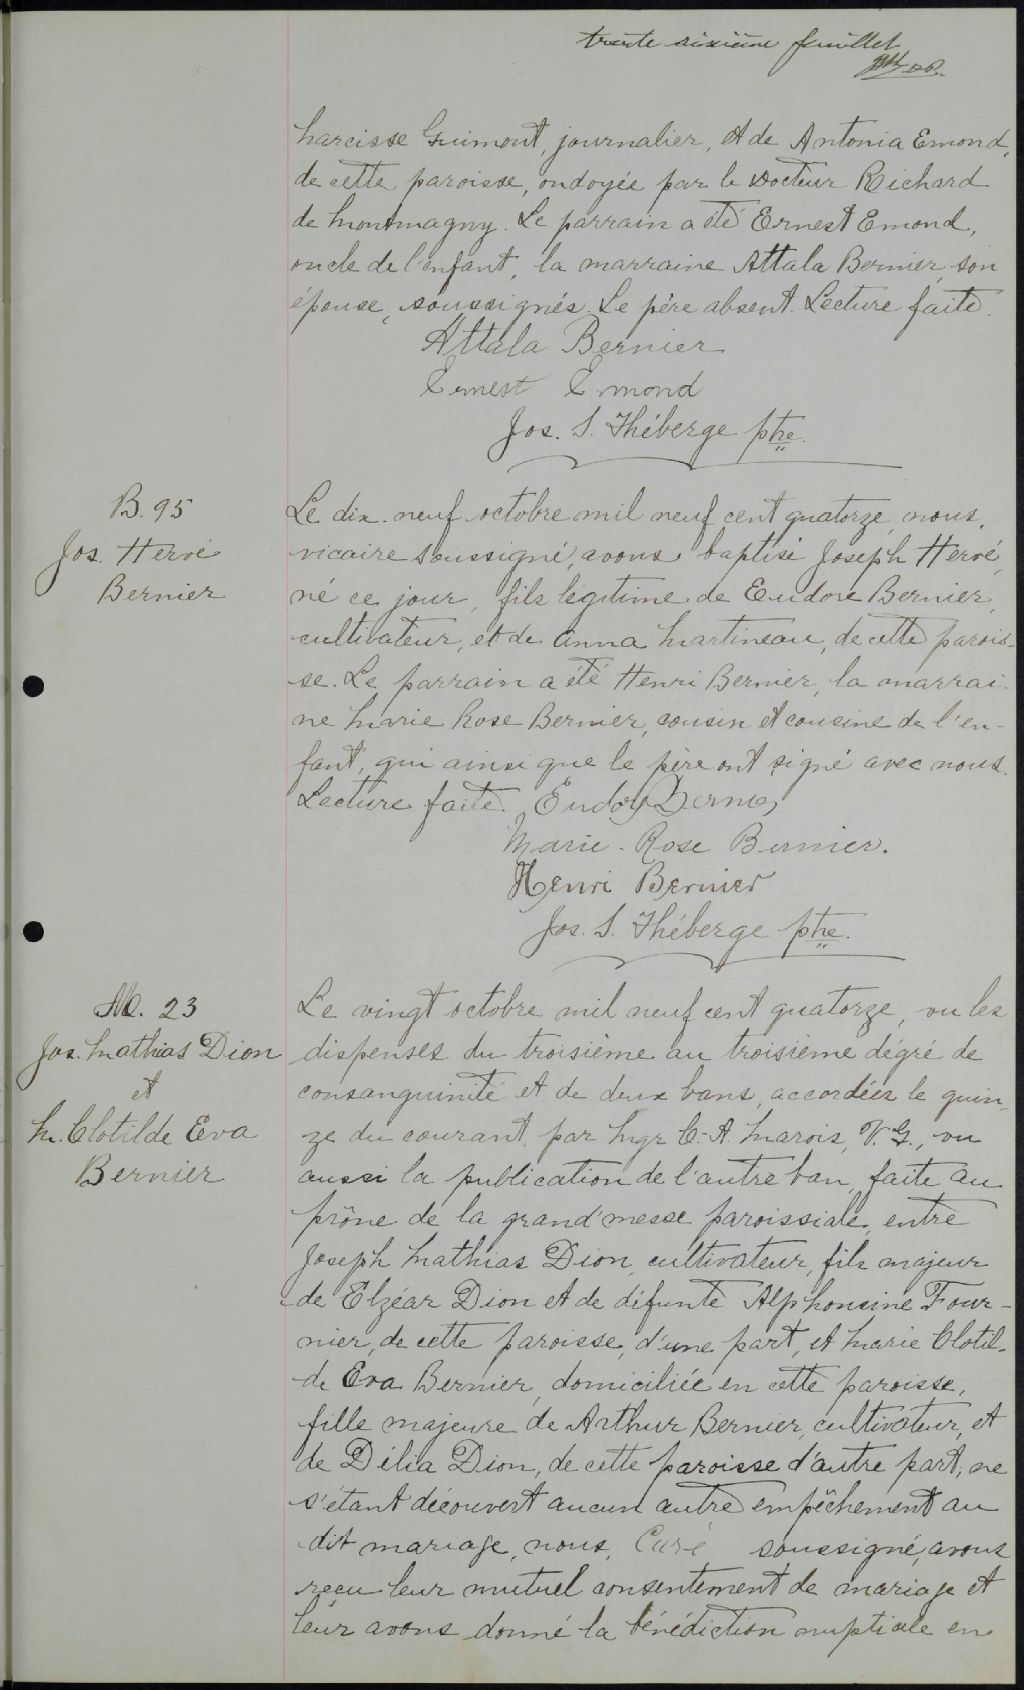 trente sixième feuillet
Narcisse Guimont, journalier, et de Antonia Emond,
de cette paroisse, ondoyée par le Docteur Richard
de Montmagny. Le parrain a été Ernest Emond,
oncle de l'enfant, la marraine Attala Bernier, son
épouse, soussignés. Le père absent. Lecture faite.
Attala Bernier
Ernest Emond
Jos. S. Théberge ptre.
B. 95
Jos. Hervé
Bernier
Le dix-neuf octobre mil neuf cent quatorze, nous,
vicaire soussigné, avons baptisé Joseph Hervé,
né ce jour, fils légitime de Eudore Bernier,
cultivateur, et de Anna Martineau, de cette parois-
se. Le parrain a été Henri Bernier, la marrai-
ne Marie Rose Bernier, cousin et cousine de l'en-
fant, qui ainsi que le père ont signé avec nous.
Lecture faite. Eudore Bernier
Marie-Rose Bernier.
Henri Bernier
Jos. S. Théberge ptre.
M. 23
Jos. Mathias Dion
et
M. Clotilde Eva
Bernier
Le vingt octobre mil neuf cent quatorze, vu les
dispenses du troisième au troisième dégré de
consanguinité et de deux bans, accordées le quin-
ze du courant, par Mgr C.-A. Marois, V. G., vu
aussi la publication de l'autre ban, faite au
prône de la grand'messe paroissiale, entre
Joseph Mathias Dion, cultivateur, fils majeur
de Elzéar Dion et de défunte Alphonsine Four-
nier, de cette paroisse, d'une part, et Marie Clotil-
de Eva Bernier, domiciliée en cette paroisse,
fille majeure de Arthur Bernier, cultivateur, et
de Délia Dion, de cette paroisse d'autre part; ne
s'étant découvert aucun autre empêchement au
dit mariage, nous, Curé soussigné, avons
reçu leur mutuel consentement de mariage et
leur avons donné la bénédiction nuptiale en